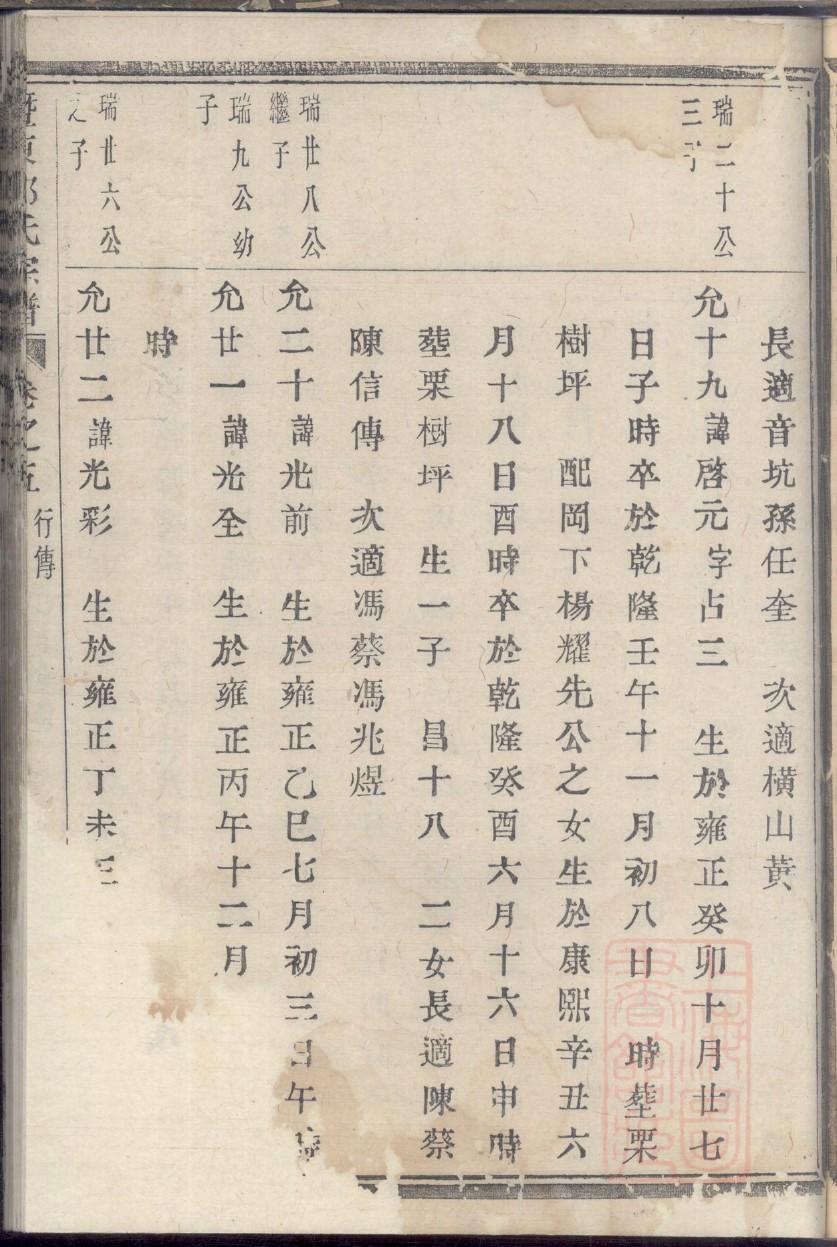 長適音坑孫任奎　次適橫山黃
瑞二十公
三子
允十九諱啓元字占三　生於雍正癸卯十月廿七
日子時卒於乾隆壬午十一月初八日　時塟栗
樹坪　配岡下楊耀先公之女生於康熙辛丑六
月十八日酉時卒於乾隆癸酉六月十六日申時
塟栗樹坪　生一子　昌十八　二女長適陳蔡
陳信傳　次適馮蔡馮兆煜
瑞廿八公
繼子
允二十諱光前　生於雍正乙巳七月初三日午時
瑞九公幼
子
允廿一諱光全　生於雍正丙午十二月
時
瑞廿六公
之子
允廿二諱光彩　生於雍正丁未三
暨東郭氏宗譜　卷之五　行傳